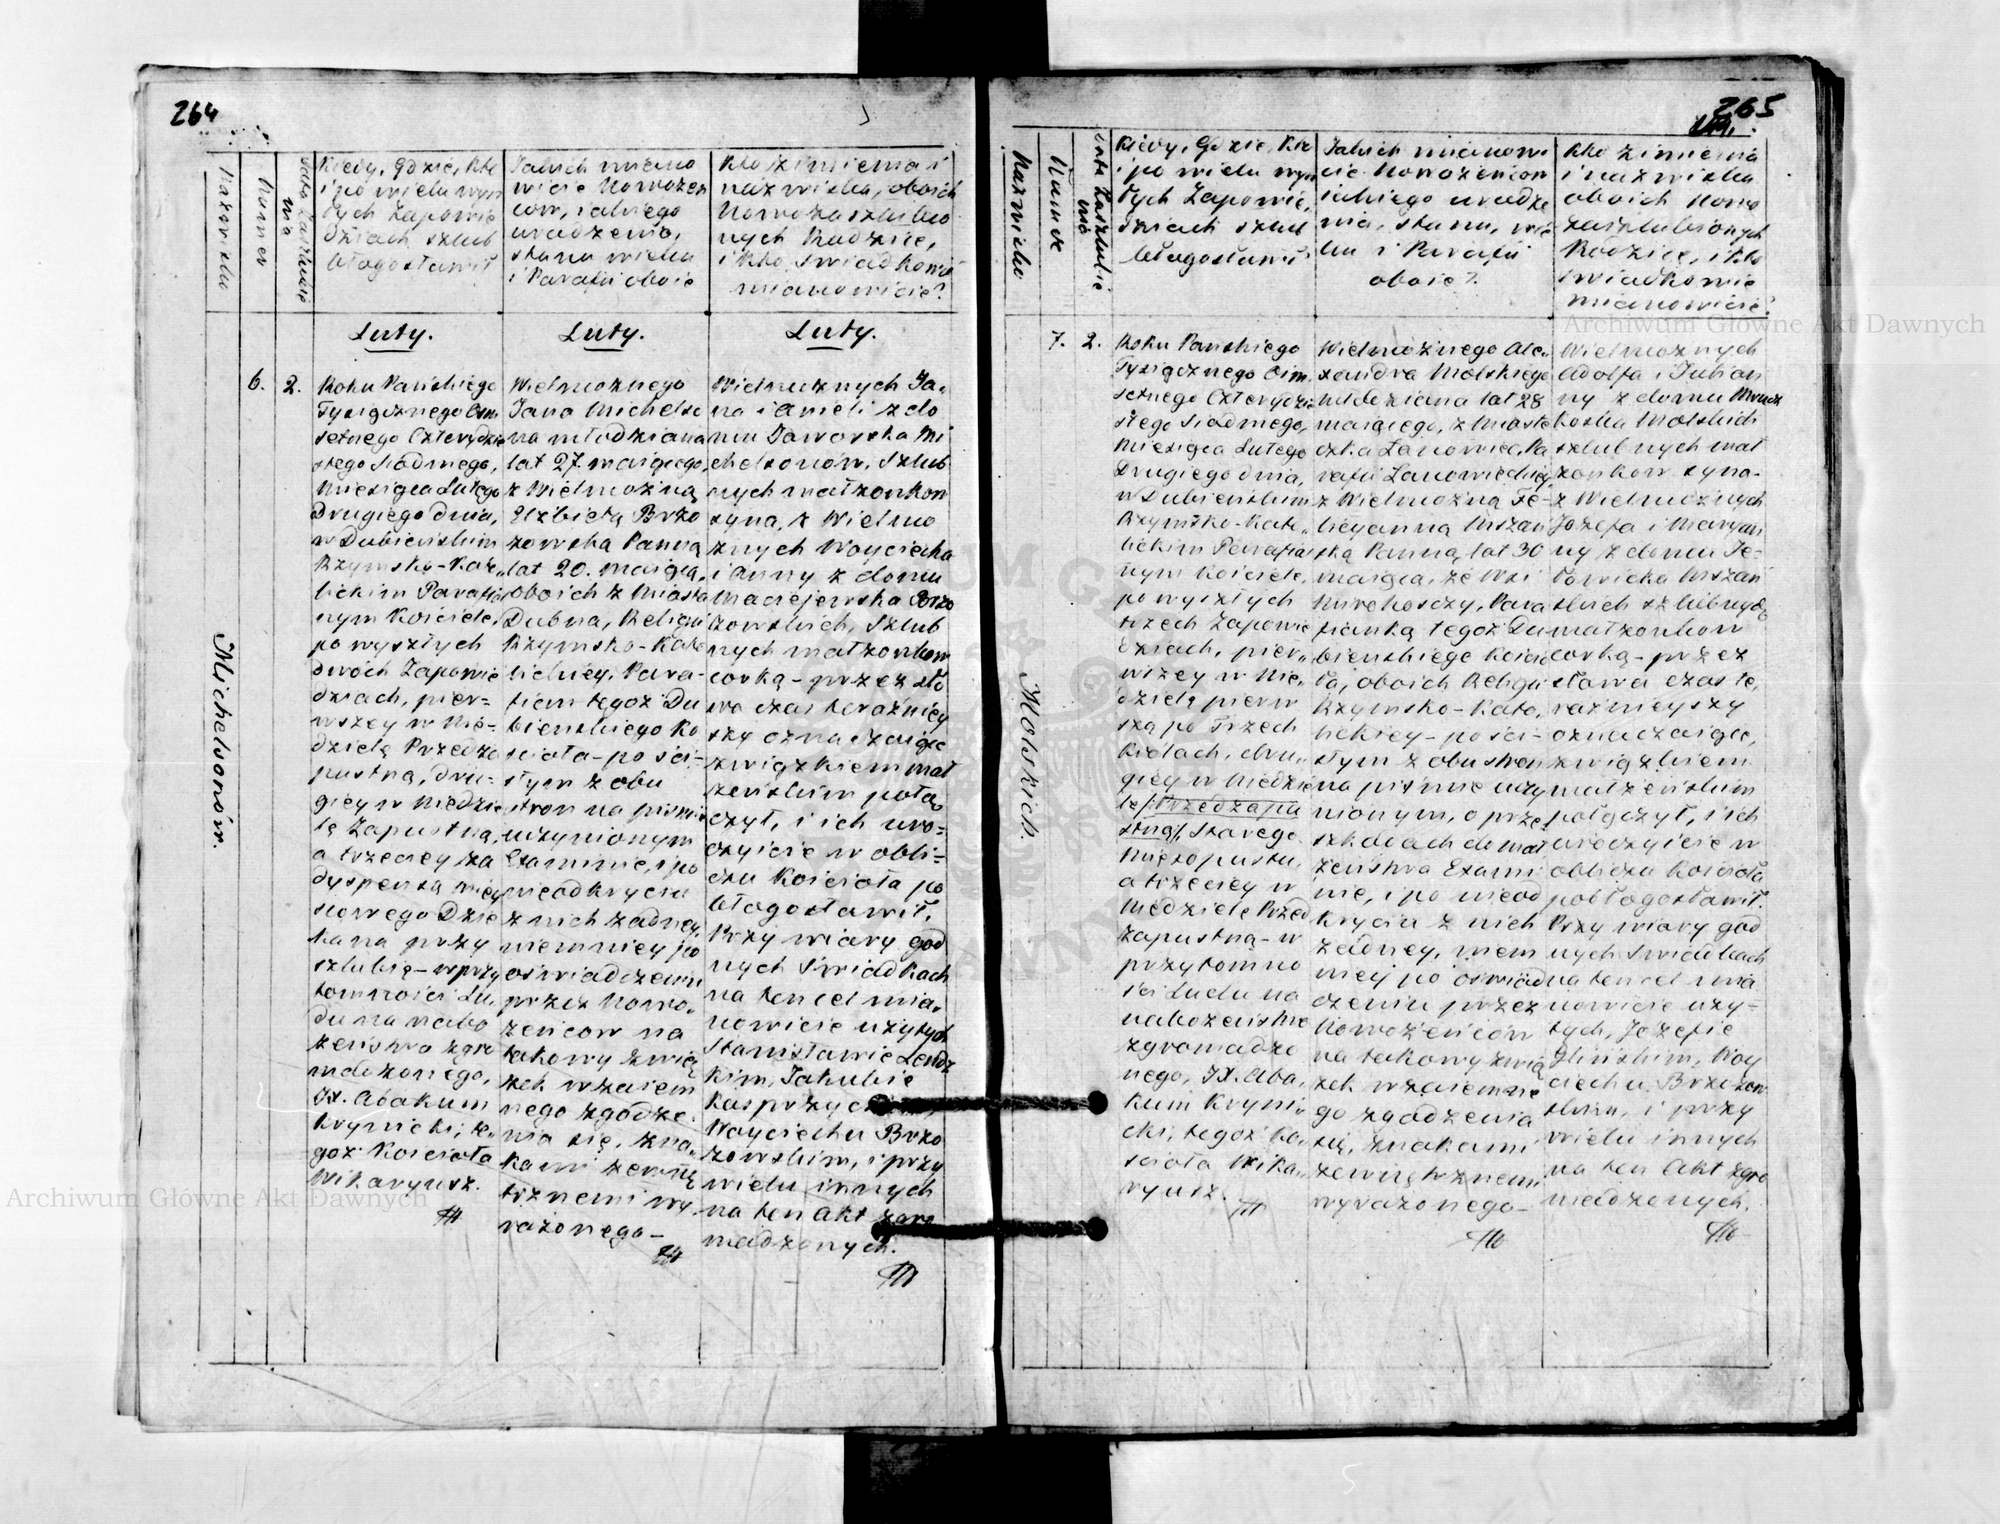 264
Nazwisko
Numer
Data Zaślubienia
Kiedy, Gdzie, Kto
i po wielu wyszłych
Zapowiedziach
szlub
błogosławił
Jakich mianowicie
Nowożeńców,
jakiego
urodzenia,
stanu wieku
i Parafii oboie
Kto z imienia i
nazwiska, oboich
Nowozaszlubionych
Rodzice,
i Kto świadkowie
mianowicie?
Luty.
Luty.
Luty.
Michelsonów.
6.
2.
Roku Pańskiego
Tysiącznego Ośm
setnego Czterydzie
stego Siódmego,
Miesiąca Lutego
Drugiego dnia,
w Dubieńskim
Rzymsko-Kato
lickim Parafial
nym Kościele,
po wyszłych
dwóch Zapowie
dziach, pier-
wszey w Nie-
dzielę Przedza
pustną, dru-
giey w Niedzie
lę Zapustną,
a trzeciey za
dyspensą miey
scowego Dzie
kana przy
szlubie - w przy
tomności Lu
du na nabo
żeństwo zgro
madzonego,
JX. Abakum
Krynicki, te
goż Kościoła
Wikaryusz.
Wielmożnego
Jana Michelso
na młodziana
lat 27. maiącego,
z Wielmożną
Elżbietą Brzo
zowską Panną
lat 20. maiącą,
oboich z Miasta
Dubna, Religii
Rzymsko-Kato
lickiey, Para-
fian tegoż Du
bieńskiego Ko
ścioła - po ści-
słym z obu
stron na piśmie
uczynionym
Examinie, i po
nieodkryciu
z nich żadney,
niemniey po
oświadczeniu
przez Nowo-
żeńcow na
takowy zwią
zek wzaiem
nego zgodze
nia się, zna
kami zewnę
trznemi wy
rażonego -
Wielmożnych Ja-
na i Anieli z do
mu Jaworska Mi
chelsonów, Szlub
nych małżonkow
syna, z Wielmo
żnych Woyciecha
i Anny z domu
Maciejewska Brzo
zowskich, Szlub
nych małżonkow
corką - przez sło
wa czas teraźniey
szy oznaczaiące
związkiem mał
żeńskim połą
czył, i ich uro-
czyście w obli-
czu Kościoła po
błogosławił.
Przy wiary god
nych Świadkach
na ten cel mia-
nowicie użytych
Stanisławie
Kim, Jakubie
Woyciechu Brzo
zowskim, i przy
wielu innych
na ten Akt zgro
madzonych.
265
Nazwisko
Numer
Data Zaślubienia
Kiedy, Gdzie, Kto
i po wielu wysz
łych Zapowie,
dziach szlub
błogosławił
Jakich mianowi
cie Nowożeńcow
iakiego urodze
nia, stanu, wie
ku i Parafii
oboie?
Kto z imienia
i nazwiska
oboich Nowo
zaszlubionych
Rodzice, i Kto
świadkowie
mianowicie?
Molskich.
7.
2.
Roku Pańskiego
Tysiącznego Ośm
setnego Czterydzie
stego Siódmego,
Miesiąca Lutego
Drugiego dnia,
w Dubieńskim
Rzymsko-Kato-
lickim Parafial
nym Kościele,
po wyszłych
trzech Zapowie
dziach, pier-
wszey w Nie-
dzielę pierw
szą po Trzech
Królach, dru-
giey w Niedzie
lę /:Przedzapu
stną:/ Starego
Mięsopustu,
a trzeciey w
Niedzielę Przed
zapustną - w
przytomno
ści Ludu na
nabożeństwo
zgromadzo
nego, JX. Aba-
kum Kryni-
cki, tegoż Ko-
ścioła Wika-
ryusz.
Wielmożnego Ale-
xandra Molskiego
młodziana lat 28
maiącego, z Miaste
czka Łanowiec, Pa
rafii Łanowieckiey,
z Wielmożną Fe-
licyanną Mszań
ską Panną, lat 30
maiącą, ze Wsi
Mirohoszczy, Para
fianką tegoż Du
bieńskiego Kościo
ła, oboich Religii
Rzymsko-Kato,
lickiey - po ści-
słym z obu stron
na piśmie uczy
nionym, o prze
szkodach do mał
żeństwa Exami
nie, i po nieod
kryciu z nich
żadney, niem
niej po oświad
czeniu przez
Nowożeńców
na takowy zwią
zek wzaiemne
go zgodzenia
się, znakami
zewnętrznemi
wyrażonego -
Wielmożnych
Adolfa i Julian
ny z domu
Molskich
szlubnych mał
żonkow syna-
z Wielmożnych
Józefa i Maryan
ny z domu Je-
łowicka Mszań
skich szlubnych
małżonkow
corką - przez
słowa czas te,
raźnieyszy
oznaczaiące,
związkiem
małżeńskim
połączył, i ich
uroczyście w
obliczu Kościoła
pobłogosławił.
Przy wiary god
nych Świadkach
na ten cel mia
nowicie uży-
tych, Józefie
Glińskim, Woy
ciechu Brzozow
skim, i przy
wielu innych
na ten Akt zgro
madzonych.
Archiwum Główne Akt Dawnych
Archiwum Główne Akt Dawnych